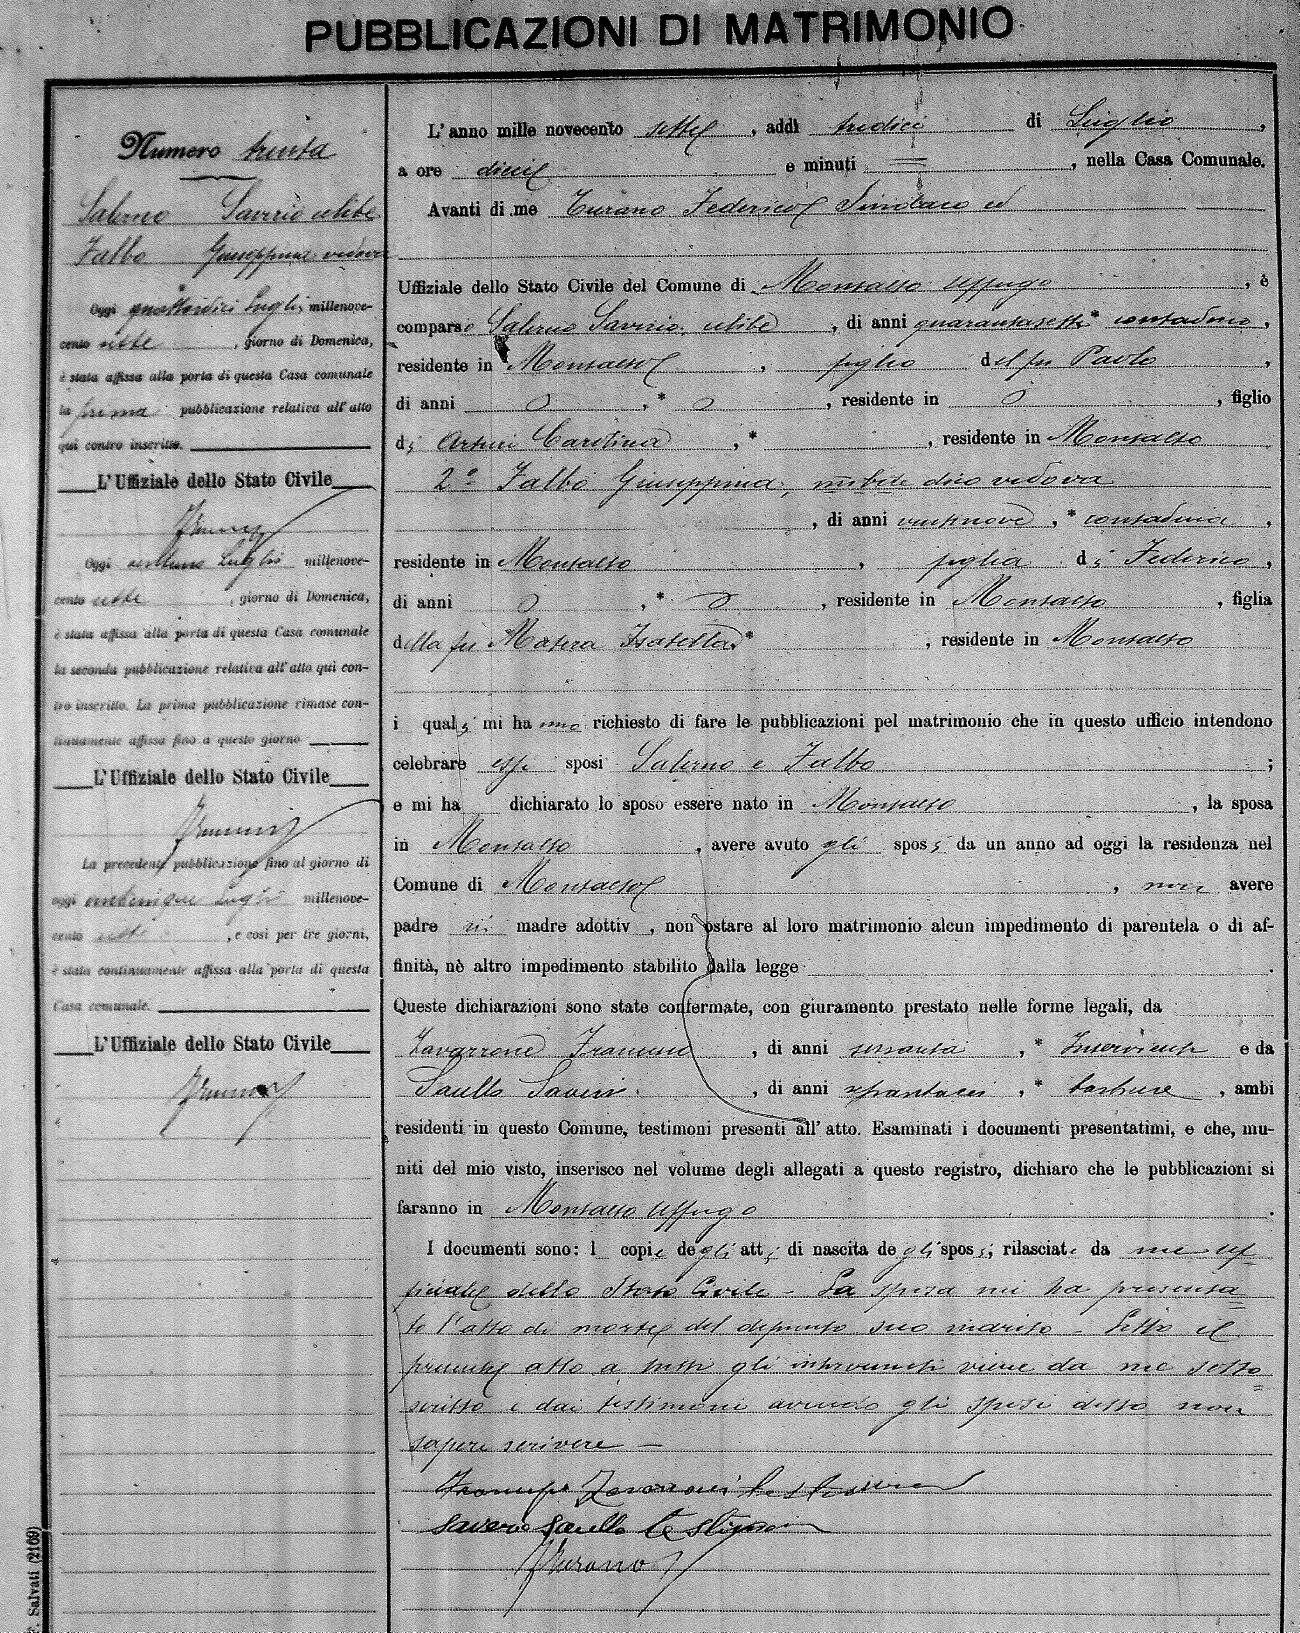 PUBBLICAZIONI DI MATRIMONIO
Numero trenta
Salerno Saverio celibe
Falbo Giuseppina vedova
Oggi quattordici Luglio millenove-
cento sette , giorno di Domenica,
è stata affissa alla porta di questa Casa comunale
la prima pubblicazione relativa all'atto
qui contro inscritto.
L'Uffiziale dello Stato Civile
Oggi ventuno Luglio millenove-
cento sette , giorno di Domenica,
è stata affissa alla porta di questa Casa comunale
la seconda pubblicazione relativa all'atto qui con-
tro inscritto. La prima pubblicazione rimase con-
tinuamente affissa fino a questo giorno
L'Uffiziale dello Stato Civile
La precedente pubblicazione fino al giorno di
oggi venticinque Luglio millenove-
cento sette , e così per tre giorni,
è stata continuamente affissa alla porta di questa
Casa comunale.
L'Uffiziale dello Stato Civile
L'anno mille novecento sette , addì tredici di Luglio ,
a ore dieci e minuti = , nella Casa Comunale.
Avanti di me Turano Federico Sindaco ed
Uffiziale dello Stato Civile del Comune di Montalto Uffugo , è
comparso Salerno Saverio, celibe , di anni quarantasette * contadino ,
residente in Montalto , figlio del fu Paolo ,
di anni , * , residente in , figlio
di Arturi Carolina , * , residente in Montalto
2° Falbo Giuseppina, nubile dico vedova
, di anni ventinove , * contadina ,
residente in Montalto , figlia di Federico ,
di anni , * , residente in Montalto , figlia
della fu Matera Isabella * , residente in Montalto
i quali mi hanno richiesto di fare le pubblicazioni pel matrimonio che in questo ufficio intendono
celebrare essi sposi Salerno e Falbo ;
e mi ha dichiarato lo sposo essere nato in Montalto , la sposa
in Montalto , avere avuto gli sposi da un anno ad oggi la residenza nel
Comune di Montalto , non avere
padre nè madre adottiv , non ostare al loro matrimonio alcun impedimento di parentela o di af-
finità, nè altro impedimento stabilito dalla legge .
Queste dichiarazioni sono state confermate, con giuramento prestato nelle forme legali, da
Zavarrone Francesco , di anni sessanta , * Inserviente e da
Saullo Saverio , di anni , * barbiere , ambi
residenti in questo Comune, testimoni presenti all'atto. Esaminati i documenti presentatimi, e che, mu-
niti del mio visto, inserisco nel volume degli allegati a questo registro, dichiaro che le pubblicazioni si
faranno in Montalto Uffugo .
I documenti sono: l copie degli atti di nascita degli sposi; rilasciate da me uf-
ficiale dello Stato Civile - La sposa mi ha presenta=
to l'atto di morte del defunto suo marito - Letto il
presente atto a tutti gli intervenuti viene da me sotto=
scritto e dai testimoni avendo gli sposi detto non
sapere scrivere —
Zavarroni testimone
Saverio Saullo testimon
FTurano
F. Salvati (2169)